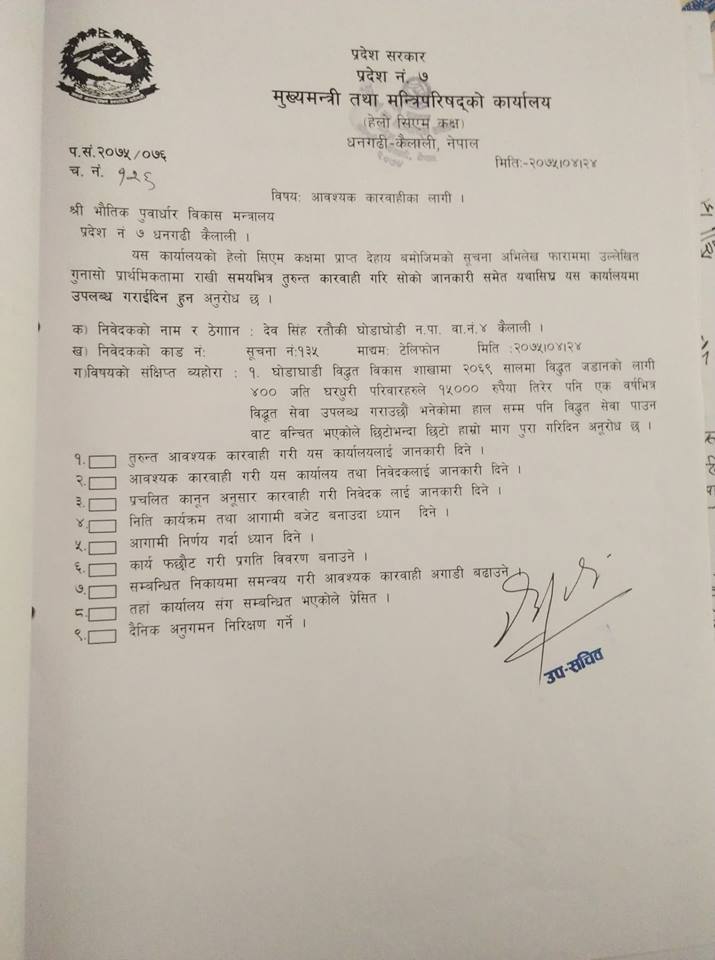 प्रदेश सरकार
प्रदेश नं. ७
मुख्यमन्त्री तथा मन्त्रिपरिषद्को कार्यालय
(हेलो सिएम कक्ष)
धनगढी-कैलाली, नेपाल
प.सं.२०७५/०७६
मिति:-२०७५।०४।२४
च. नं. १२६
विषय: आवश्यक कारवाहीका लागी ।
श्री भौतिक पुवार्धार विकास मन्त्रालय
प्रदेश नं ७ धनगढी कैलाली ।
यस कार्यालयको हेलो सिएम कक्षमा प्राप्त देहाय बमोजिमको सूचना अभिलेख फाराममा उल्लेखित
गुनासो प्रार्थमिकतामा राखी समयभित्र तुरुन्त कारवाही गरि सोको जानकारी समेत यथासिघ्र यस कार्यालयमा
उपलब्ध गराईदिन हुन अनुरोध छ ।
क) निवेदकको नाम र ठेगाान : देव सिंह रतौकी घोडाघोडी न.पा. वा.नं.४ कैलाली ।
ख) निवेदकको काड नं: सूचना नं:१३५ माद्यम: टेलिफोन मिति :२०७५।०४।२४
ग)विषयको संक्षिप्त ब्यहोरा : १. घोडाघाडी विद्धुत विकास शाखामा २०६९ सालमा विद्धुत जडानको लागी
४०० जति घरधुरी परिवारहरुले १५००० रुपैया तिरेर पनि एक वर्षभित्र
विद्धूत सेवा उपलब्ध गराउछौ भनेकोमा हाल सम्म पनि विद्धुत सेवा पाउन
वाट वन्चित भएकोले छिटोभन्दा छिटो हाम्रो माग पुरा गरिदिन अनूरोध छ ।
१. तुरुन्त आवश्यक कारवाही गरी यस कार्यालयलाई जानकारी दिने ।
२. आवश्यक कारवाही गरी यस कार्यालय तथा निवेदकलाई जानकारी दिने ।
३. प्रचलित कानून अनूसार कारवाही गरी निवेदक लाई जानकारी दिने ।
४. निति कार्यक्रम तथा आगामी बजेट बनाउदा ध्यान दिने ।
५. आगामी निर्णय गर्दा ध्यान दिने ।
६. कार्य फछौट गरी प्रगति विवरण बनाउने ।
७. सम्बन्धित निकायमा समन्वय गरी आवश्यक कारवाही अगाडी बढाउने ।
८. तहां कार्यालय संग सम्बन्धित भएकोले प्रेसित ।
९. दैनिक अनुगमन निरिक्षण गर्ने ।
उप-सचिव